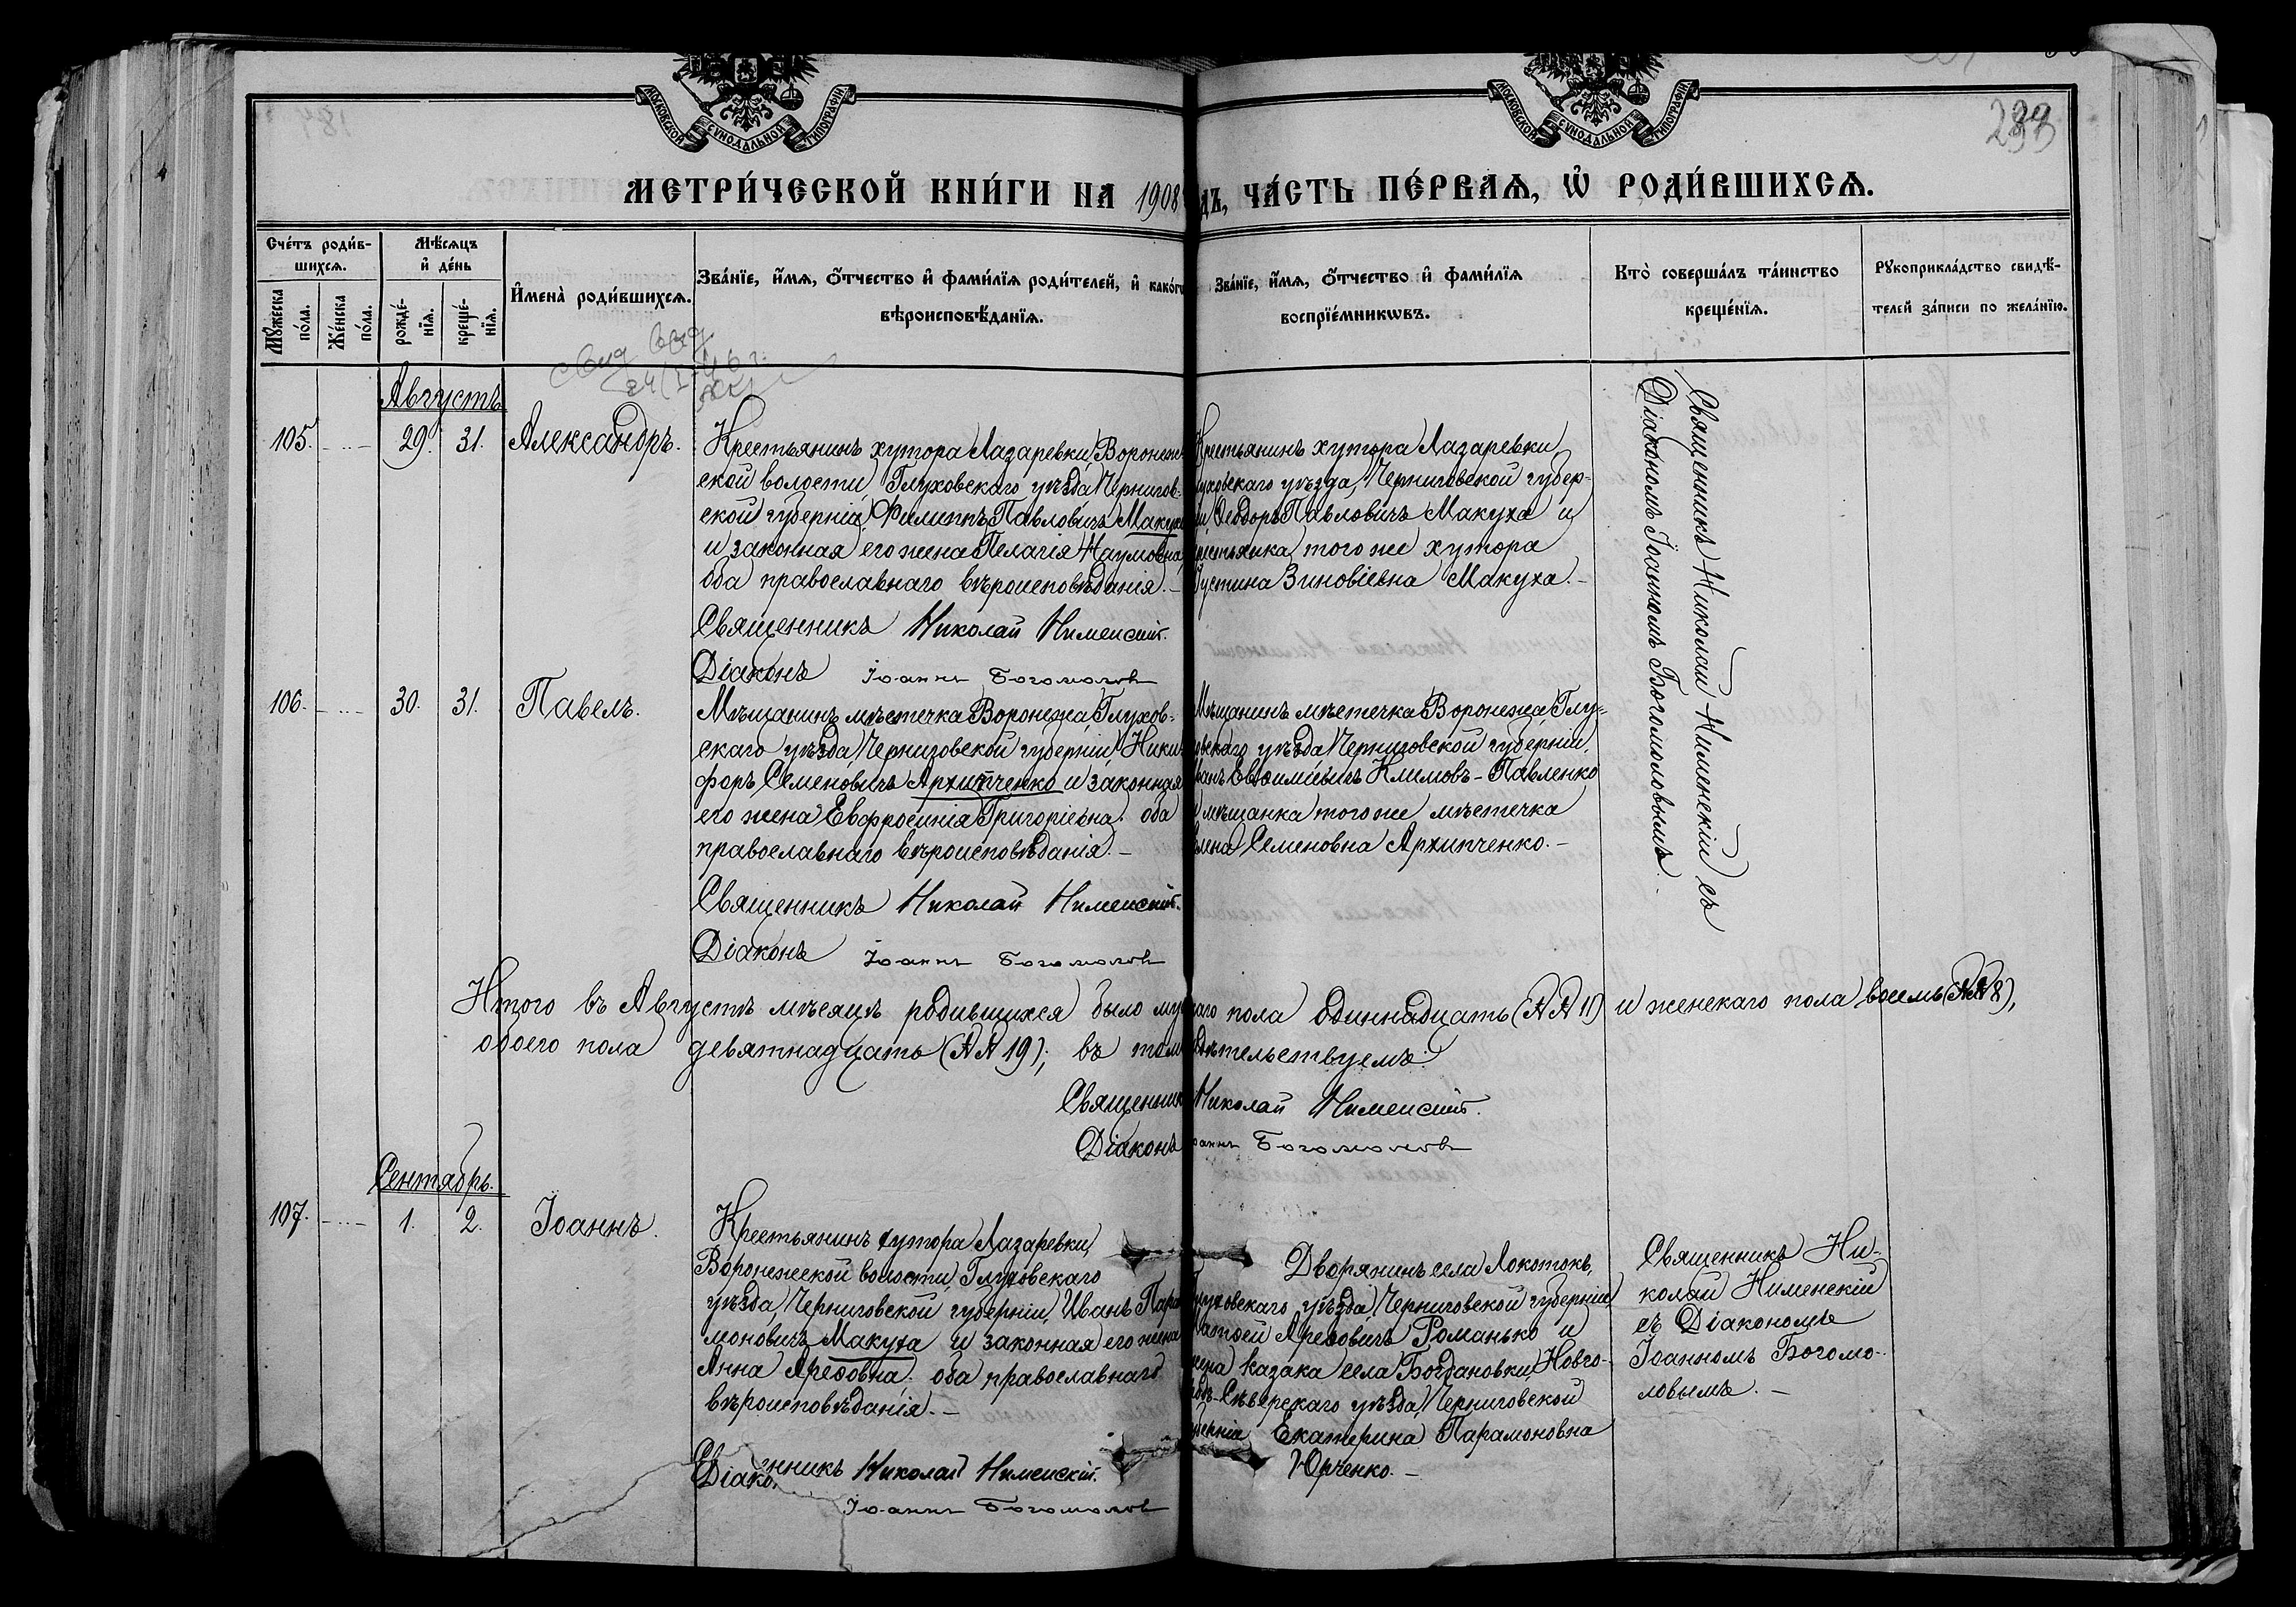 МОСКОВСКОЙ СУНОДАЛЬНОЙ ТИПОГРАФІИ
МОСКОВСКОЙ СУНОДАЛЬНОЙ ТИПОГРАФІИ
МЕТРИ́ЧЕСКОЙ КНИ́ГИ НА 1908 ДЪ, ЧА́СТЬ ПЕ́РВАЯ, Ѡ҆ РОДИ́ВШИХСЯ.
Сче́тъ роди́в-
шихся.
Мѣ́сяцъ
и҆ де́нь
И҆мена̀ роди́вшихся.
Зва́нїе, и҆́мя, ѻ҆́тчество и҆ фами́лїя роди́телей, и҆ како́гѡ
вѣроисповѣ́данїя.
Зва́нїе, и҆́мя, ѻ҆́тчество и҆ фами́лїя
воспрїе́мникѡвъ.
Кто̀ соверша́лъ та́инство
креще́нїя.
Рꙋкоприкла́дство свидѣ́-
телей за́писи по жела́нїю.
Мꙋ́жеска
по́ла.
Же́нска
по́ла.
рожде́-
нїя.
креще́-
нїя.
Августъ
105. 29. 31. Александръ.
Крестьянинъ хутора Лазаревки, Воронеж
ской волости, Глуховскаго уѣзда, Чернигов-
ской губерніи, Филиппъ Павловичъ Макуха
и законная его жена Пелагія Наумовна,
оба православнаго вѣроисповѣданія. –
Священникъ Николай Нименскій.
Діаконъ Іоаннъ Богомолов
Крестьянинъ хутора Лазаревки,
луховскаго уѣзда, Черниговской губер-
ніи Ѳеодоръ Павловичъ Макуха и
крестьянка того же хутора
Іустина Зиновіевна Макуха. –
Священникъ Николай Нименскій съ
Діакономъ Іоанномъ Богомоловымъ.
106. 30. 31. Павелъ.
Мѣщанинъ мѣстечка Воронежа, Глухов-
скаго уѣзда, Черниговской губерніи, Ники
форъ Семеновичъ Архипченко и законная
его жена Евфросинія Григоріевна, оба
православнаго вѣроисповѣданія. –
Священникъ Николай Нименскій.
Діаконъ Іоаннъ Богомолов
Мѣщанинъ мѣстечка Воронежа, Глу-
овскаго уѣзда, Черниговской губерніи,
ванъ Евѳиміевичъ Климовъ-Павленко
и мѣщанка того же мѣстечка
лена Семеновна Архипченко. –
Итого въ Августѣ мѣсяцѣ родившихся было му каго пола одиннадцать (№№ 11) и женскаго пола восемь (№№ 8),
обоего пола девятнадцать (№№ 19); въ томъ дѣтельствуемъ:
Священник Николай Нименскій.
Діаконъ оаннъ Богомолов
Сентябрь.
107. 1. 2. Іоаннъ.
Крестьянинъ хутора Лазаревки,
Воронежской волости, Глуховскаго
уѣзда, Черниговской губерніи, Иванъ Пара
моновичъ Макуха и законная его жена
Анна Арефовна, оба православнаго
вѣроисповѣданія. –
Св нникъ Николай Нименскій.
Діако Іоаннъ Богомолов
Дворянинъ села Локотокъ,
Глуховскаго уѣзда, Черниговской губерніи,
Арефовичъ Романько и
жена казака села Богдановки, Новго-
родъ-Сѣверскаго уѣзда, Черниговской
берніи Екатерина Парамоновна
Юрченко. –
Священникъ Ни-
колай Нименскій
съ Діакономъ
Іоанномъ Богомо-
ловымъ. –